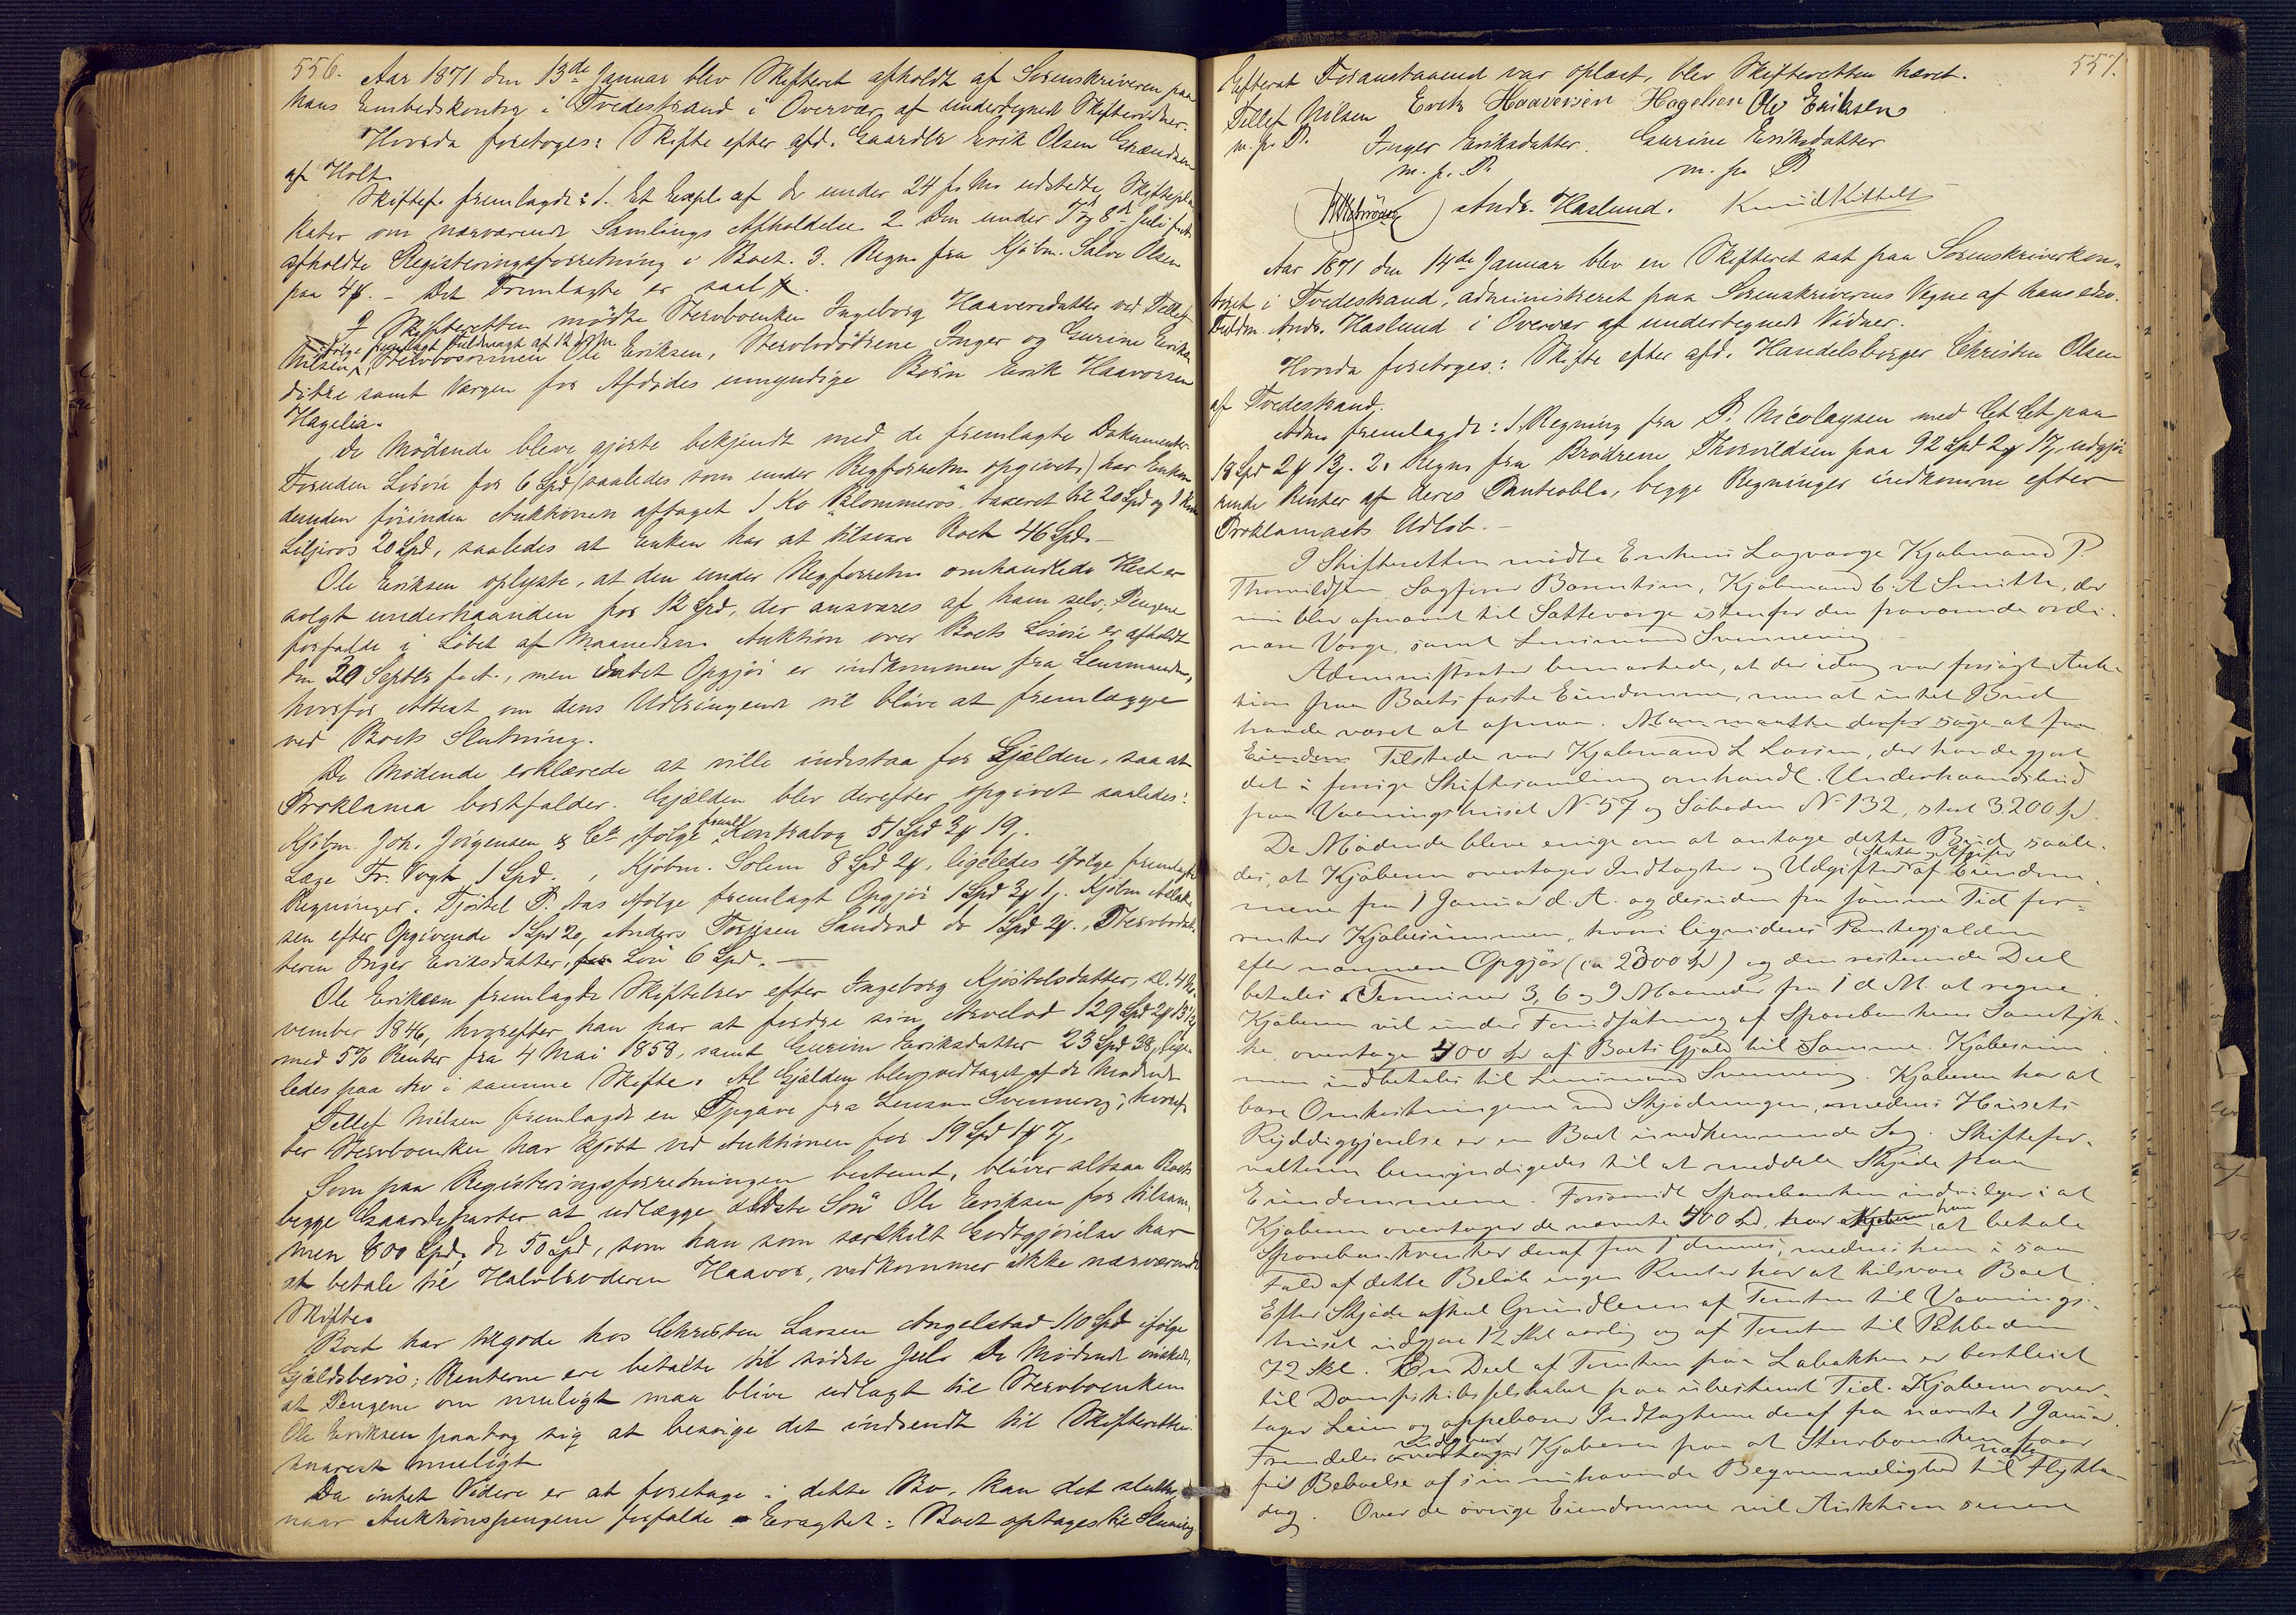 556.
Aar 1871 den 13de Januar blev Skifteret afholdt af Sorenskriveren paa
hans Embedskontor i Tvedestrand i Overvær af undertegnede Skiftevidner.
Hvorda foretoges: Skifte efter afd. Gaardbr Erik Olsen Grændsen
af Holt.
Skiftef. fremlagde: 1. Et Expl. af de under 24 f. M. udstedte Skiftepla-
kater om nærværende Samlings Afholdelse 2 Den under 7 og 8de Juli f.
afholdte Registreringsforretning i Boet. 3. Regn. fra Kjöbm. Salve Olsen
paa 4 . - Det Fremlagte er saal.
I Skifteretten mødte Stervboenken Ingeborg Haavorsdatter ved Tellef
ifølge fremlagt Fuldmagt af 12 d. M.
Nilsen, Stervbosönnen Ole Eriksen, Stervbodöttrene Inger og Gurine Eriks-
döttre samt Værgen for Afdödes umyndige Börn Erik Haavorsen
Hagelia.
De Mödende bleve gjorte bekjendt med de fremlagte Dokumenter.
Foruden Lösöre for 6 Spd (saaledes som under Regforretn. opgivet) har Enken
desuden förinden Auktionen aftaget 1 Ko "Blommerös" taxeret til 20 Spd og 1
Liljeros 20 Spd, saaledes at Enken har at tilsvare Boet 46 Spd. —
Ole Eriksen oplyste, at den under Regforretn. omhandlede Hest er
solgt underhaanden for 12 Spd, der ansvares af ham selv; Pengene
forfalde i Löbet af Maaneden. Auktion over Boets Lösöre er afholdt
den 30 Septbr f. A., men Intet Opgjör er indkommen fra Lensmanden,
hvorfor Attest om dens Udbringende vil blive at fremlægge
ved Boets Slutning.
De Mödende erklærede at ville indestaa for Gjælden, saa at
Proklama bortfalder. Gjælden blev derefter opgivet saaledes:
Kjöbm. Joh. Jörgensen & Co ifölge freml. Kontrabog 51 Spd 3 19 .
Læge Fr. Vogt 1 Spd. , Kjöbm. Solem 8 Spd 2 , ligeledes ifölge fremlagte
Regninger. Kjöstel P. Aas ifölge fremlagt Opgjör 1 Spd 3 1 . Kjöbm.
sen efter Opgivende 1 Spd 20, Anders Torjesen Sandvad do 1 Spd 2 . , Stervbodat-
teren Inger Eriksdatter, for Lön 6 Spd. —
Ole Eriksen fremlagde Skiftebrev efter Ingeborg Kjöstelsdatter, sl. 4 No-
vember 1846, hvorefter han har at fordre sin Arvelod 129 Spd 2 13
med 5% Renter fra 4 Mai 1858, samt Gurine Eriksdatter 23 Spd 38 , lige-
ledes paa Arv i samme Skifte. Al Gjælden blev vedtaget af de Mödende
Tellef Nielsen fremlagde en Opgave fra Lensm. Svennevig, hvoref-
ter Stervboenken har kjöbt ved Auktionen for 19 Spd 1 7 .
Som paa Registreringsforretningen bestemt, bliver altsaa Boets
begge Gaardeparter at udlægge ældste Sön Ole Eriksen for tilsam-
men 800 Spd. De 50 Spd, som han som særskilt Godtgjörelse har
at betale til Halvbroderen Haavor, vedkommer ikke nærværende
Skifte.
Boet har tilgode hos Christen Larsen Angelstad 110 Spd ifölge
Gjældsbevis; Renterne ere betalte til sidste Jul. De Mödende önskede,
at Pengene om muligt maa blive udlagt til Stervboenken.
Ole Eriksen paatog sig at besörge det indsendt til Skifteretten
snarest muligt.
Da intet Videre er at foretage i dette Bo, kan det sluttes
naar Auktionspengene forfalde. Eragtet: Boet optages til Slutning.
557.
Efterat Foranstaaende var oplæst, blev Skifteretten hævet.
Tellef Nilsen Erik Haavorsen Hagelien Ole Eriksen
m. p. P. Inger Eriksdatter. Gurine Eriksdatter
m. p. P. m. p. P.
Andr. Haslund. Knud Kittels
Aar 1871 den 14de Januar blev en Skifteret sat paa Sorenskriverkon-
toret i Tvedestrand, administreret paa Sorenskriverens Vegne af hans edsv.
Fuldm. Andr. Haslund i Overvær af undertegnede Vidner.
Hvorda foretoges: Skifte efter afd. Handelsborger Christen Olsen
af Tvedestrand.
Adm. fremlagde: 1. Regning fra P. Nicolaysen med Et Et paa
18 Spd 2 12 . 2. Regn. fra Brödrene Thorvildsen paa 92 Spd 2 17 , udgjö-
rende Renter af deres Panteobl., begge Regninger indkomne efter
Proklamaets Udlöb. —
I Skifteretten mödte Enkens Lagværge Kjöbmand P.
Thorvildsen, Sagförer Barentsen, Kjöbmand C. A. Smith, der
nu blev opnævnt til Sætteværge istedenfor den fraværende ordi-
nære Værge, samt Lensmand Svennevig.
Administrator bemærkede, at der idag var forsögt Auk-
tion paa Boets faste Eiendomme, men at intet Bud
havde været at opnaa. Man maatte derfor söge at faa
Tilstede var Kjöbmand L Larsen, der havde gjort
det i forrige Skiftesamling omhandl. Underhaandsbud
paa Vaaningshuset No 57 og Söboden No 132, stort 3200 Spd.
De Mödende bleve enige om at antage dette Bud saale-
des, at Kjöberen overtager Indtægter og Udgifter (Skatter og Afgifter) af Eiendom-
mene fra 1 Januar d. A. og desuden fra samme Tid for-
renter Kjöbesummen, hvori liqvideres Pantegjælden
efter nærmere Opgjör (ca 2300 Spd) og den resterende Deel
betales i Terminer 3, 6 og 9 Maaneder fra 1 d. M. at regne.
Kjöberen vil under Forudsætning af Sparebankens Samtyk-
ke overtage 400 Spd af Boets Gjæld til Samme. Kjöbesum-
men indbetales til Lensmand Svennevig. Kjöberen har at
bære Omkostningerne ved Skjödningen, medens Husets
Ryddiggjörelse er en Boet uvedkommende Sag. Skiftefor-
valteren bemyndigedes til at meddele Skjöde paa
Eiendommene. Forsaavidt Sparebanken indvilger i at
Kjöberen overtager de nævnte 400 Spd, har han at betale
Sparebankrenter deraf fra 1 dennes, medens han i saa
Fald af dette Belöb ingen Renter har at tilsvare Boet.
Efter Skjöde afskal Grundleien af Tomten til Vaanings-
huset udgjöre 12 Skl aarlig og af Tomten til Pakboden
72 Skl. En Deel af Tomten paa Labakken er bortleiet
til Dampskibsselskabet paa ubestemt Tid. Kjöberen over-
tager Leien og oppebærer Indtægterne deraf fra nævnte 1 Januar.
Fremdeles indgaar Kjöberen paa at Stervboenken faar
fri Beboelse af sin nuhavende Beqvemmelighed til næste Flytte-
dag. Over de övrige Eiendomme vil Auktion senere